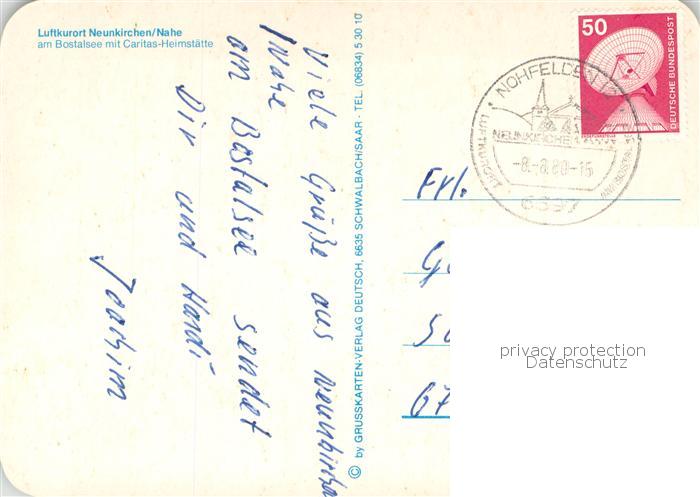 Luftkurort Neunkirchen/Nahe
am Bostalsee mit Caritas-Heimstätte
Viele Grüße aus Neunkirchen
/Nahe
am Bostalsee sendet
Dir und Hardi
Joachim
© by GRUSSKARTEN-VERLAG DEUTSCH, 6635 SCHWALBACH/SAAR · TEL. (06834) 5 30 10
50
DEUTSCHE BUNDESPOST
NOHFELDEN
NEUNKIRCHEN
LUFTKURORT
AM BOSTALSEE
-8.-8.80-15
6697
Frl.
privacy protection
Datenschutz